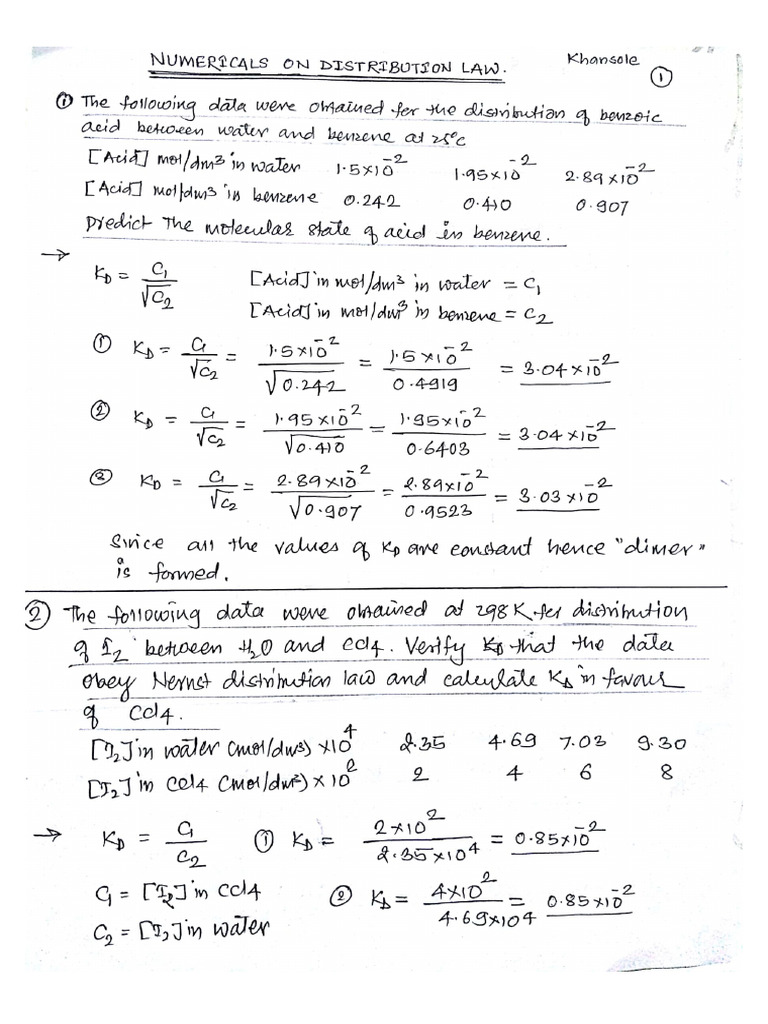 NUMERICALS ON DISTRIBUTION LAW. Khansole ①
① The following data were obtained for the distribution of benzoic
acid between water and benzene at 25°C
[Acid] mol/dm³ in water 1.5×10⁻² 1.95×10⁻² 2.89×10⁻²
[Acid] mol/dm³ in benzene 0.242 0.410 0.907
Predict The molecular state of acid in benzene.
→ K_D = C₁/√C₂ [Acid] in mol/dm³ in water = C₁
[Acid] in mol/dm³ in benzene = C₂
① K_D = C₁/√C₂ = 1.5×10⁻²/√0.242 = 1.5×10⁻²/0.4919 = 3.04×10⁻²
② K_D = C₁/√C₂ = 1.95×10⁻²/√0.410 = 1.95×10⁻²/0.6403 = 3.04×10⁻²
③ K_D = C₁/√C₂ = 2.89×10⁻²/√0.907 = 2.89×10⁻²/0.9523 = 3.03×10⁻²
Since all the values of K_D are constant hence "dimer"
is formed.
② The following data were obtained at 298K for distribution
of I₂ between H₂O and CCl4. Verify K_D that the data
obey Nernst distribution law and calculate K_D in favour
of CCl4.
[I₂] in water (mol/dm³) ×10⁴ 2.35 4.69 7.03 9.30
[I₂] in CCl4 (mol/dm³) × 10² 2 4 6 8
→ K_D = C₁/C₂ ① K_D = 2×10²/2.35×10⁴ = 0.85×10⁻²
C₁ = [I₂] in CCl4 ② K_D = 4×10²/4.69×10⁴ = 0.85×10⁻²
C₂ = [I₂] in water